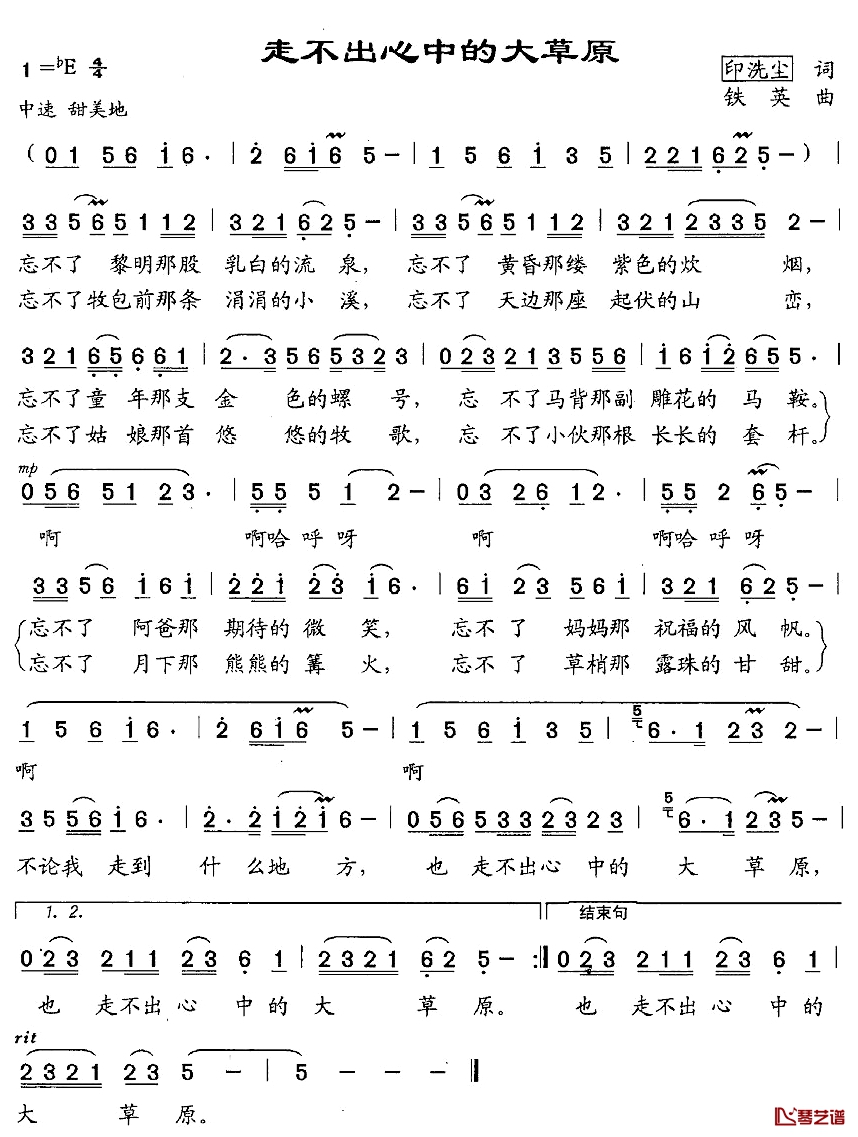 走不出心中的大草原
1=♭E 4/4
印洗尘 词
中速 甜美地
铁英 曲
(01 56 i6· | 2 6i6 5- | 15 6i 35 | 221 62 5-) |
335 6 51 112 | 321 62 5- | 335 6 51 112 | 321 2335 2- |
忘不了 黎明那股 乳白的流 泉, 忘不了 黄昏那缕 紫色的炊 烟,
忘不了牧包前那条 涓涓的小 溪, 忘不了 天边那座 起伏的山 峦,
321 656 61 | 2·3565323 | 023213556 | i6 i2655· |
忘不了童 年那支 金 色的螺 号, 忘 不了马背那副 雕花的 马 鞍。
忘不了姑 娘那首 悠 悠的牧 歌, 忘 不了小伙那根 长长的 套 杆。
mp
056 51 23· | 55 5 1 2- | 03 26 12· | 55 2 65- |
啊 啊哈 呼 呀 啊 啊哈 呼 呀
3356 i6i | 22i 23 i6· | 6i 23 56i | 321 62 5- |
忘不了 阿爸那 期待的 微 笑, 忘不 了 妈妈那 祝福的 风 帆。
忘不了 月下那 熊熊的 篝 火, 忘不 了 草梢那 露珠的 甘 甜。
1 5 6 i6· | 2 6i6 5- | 1 5 6i 35 | 5 6·1 23 2- |
啊 啊
35 56 i6· | 2·2 i2i 6- | 056533 23 23 | 5 6·1 23 5- |
不论我 走到 什 么地 方, 也 走不出心 中的 大 草 原,
1. 2. 结束句
023 211 23 6 1 | 2321 62 5- :‖ 023 211 23 6 1 |
也 走不出 心 中的 大 草 原。 也 走不出 心 中的
rit
2321 23 5 - | 5 - - - ‖
大 草 原。
琴艺谱